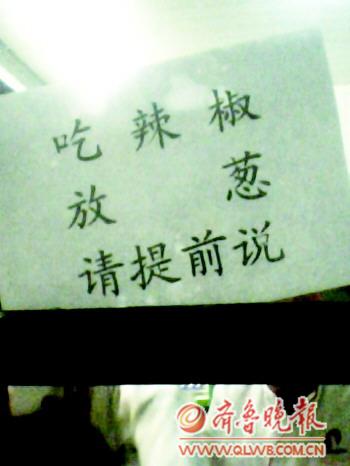 吃辣椒
放 葱
请提前说
齐鲁晚报
WWW.QLWB.COM.CN